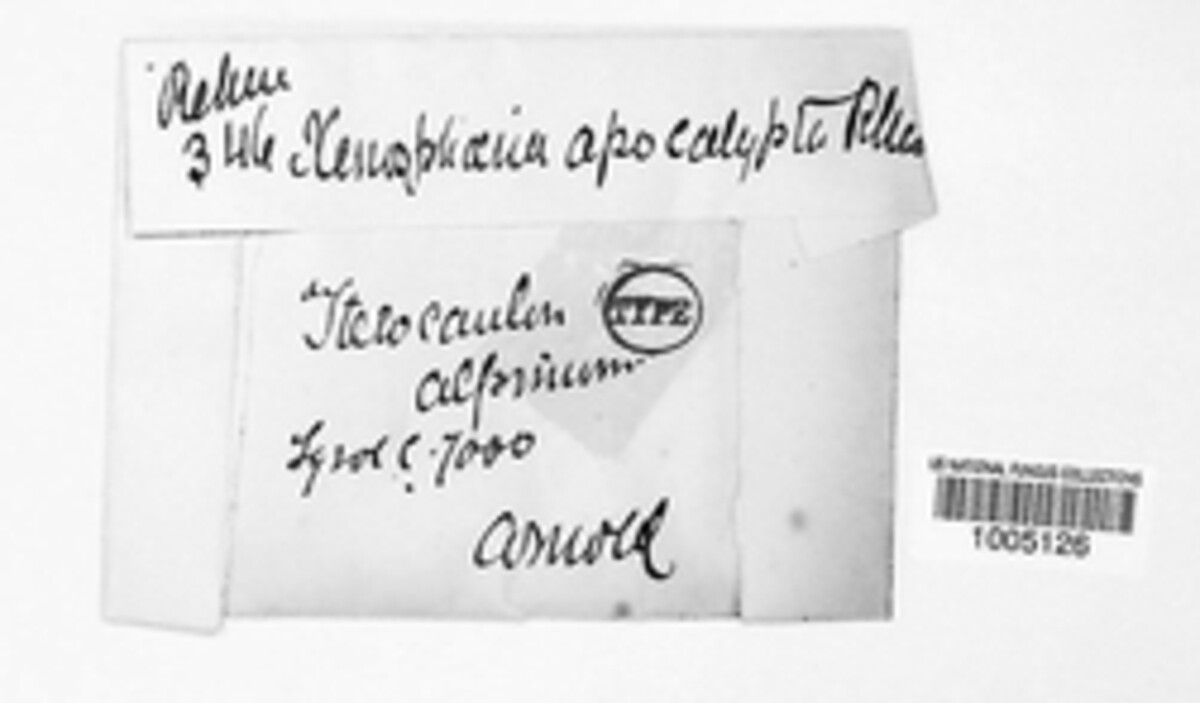 Rehm
346 Xenosphaeria apocalypta Rehm
an Stereocaulon TYPE
alpinum
Tyrol c. 7000
Arnold
US NATIONAL FUNGUS COLLECTIONS
1005126